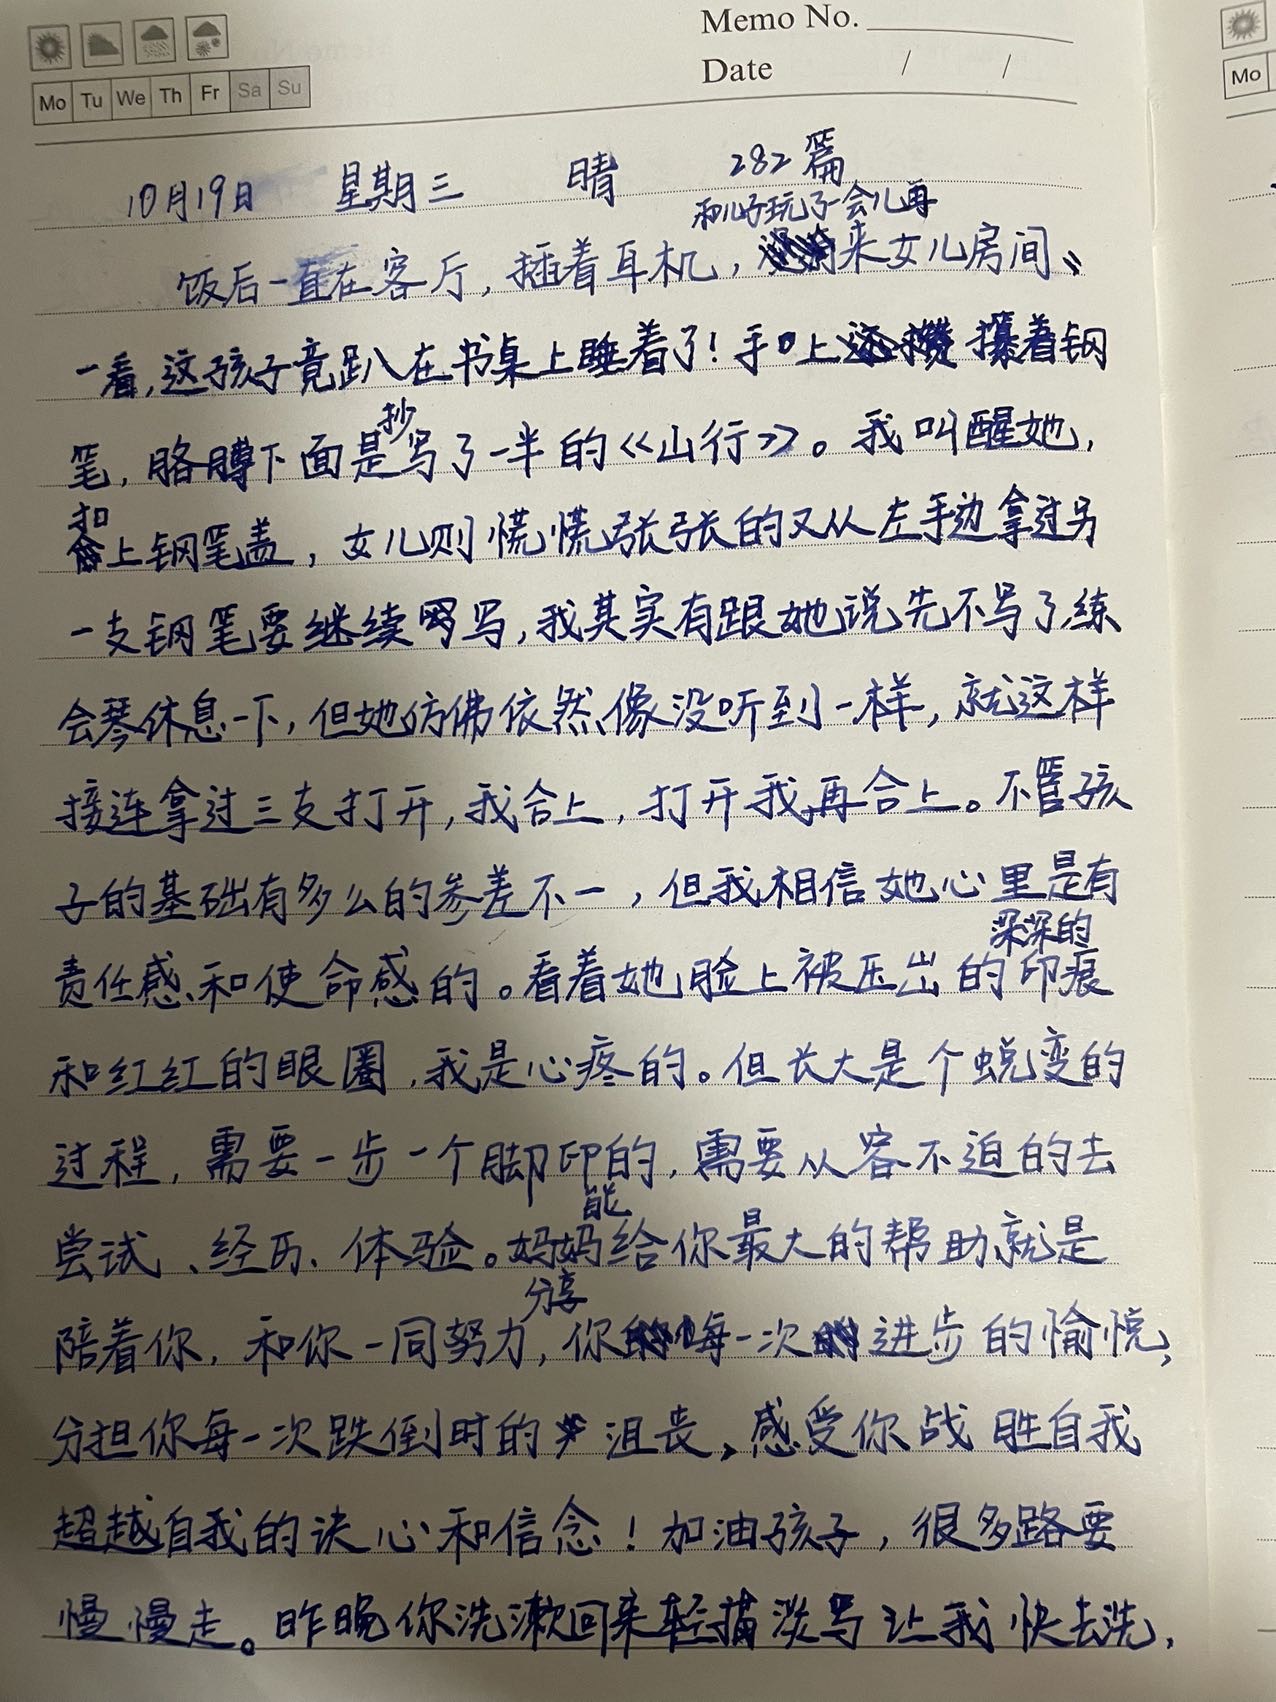 Memo No.
Date / /
Mo Tu We Th Fr Sa Su
Mo
10月19日 星期三 晴 282篇
和儿子玩了一会儿再
饭后一直在客厅，插着耳机，来女儿房间
一看，这孩子竟趴在书桌上睡着了！手上攥着钢
抄
笔，胳膊下面是写了一半的《山行》。我叫醒她，
扣
上钢笔盖，女儿则慌慌张张的又从左手边拿过另
一支钢笔要继续写，我其实有跟她说先不写了，练
会琴休息一下，但她仿佛依然像没听到一样，就这样
接连拿过三支打开，我合上，打开我再合上。不管孩
子的基础有多么的参差不一，但我相信她心里是有
深深的
责任感、和使命感的。看着她脸上被压出的印痕
和红红的眼圈，我是心疼的。但长大是个蜕变的
过程，需要一步一个脚印的，需要从容不迫的去
能
尝试、经历、体验。妈妈给你最大的帮助、就是
分享
陪着你，和你一同努力，你每一次进步的愉悦，
分担你每一次跌倒时的沮丧，感受你战胜自我
超越自我的决心和信念！加油孩子，很多路要
慢慢走。昨晚你洗漱回来轻描淡写让我快去洗，